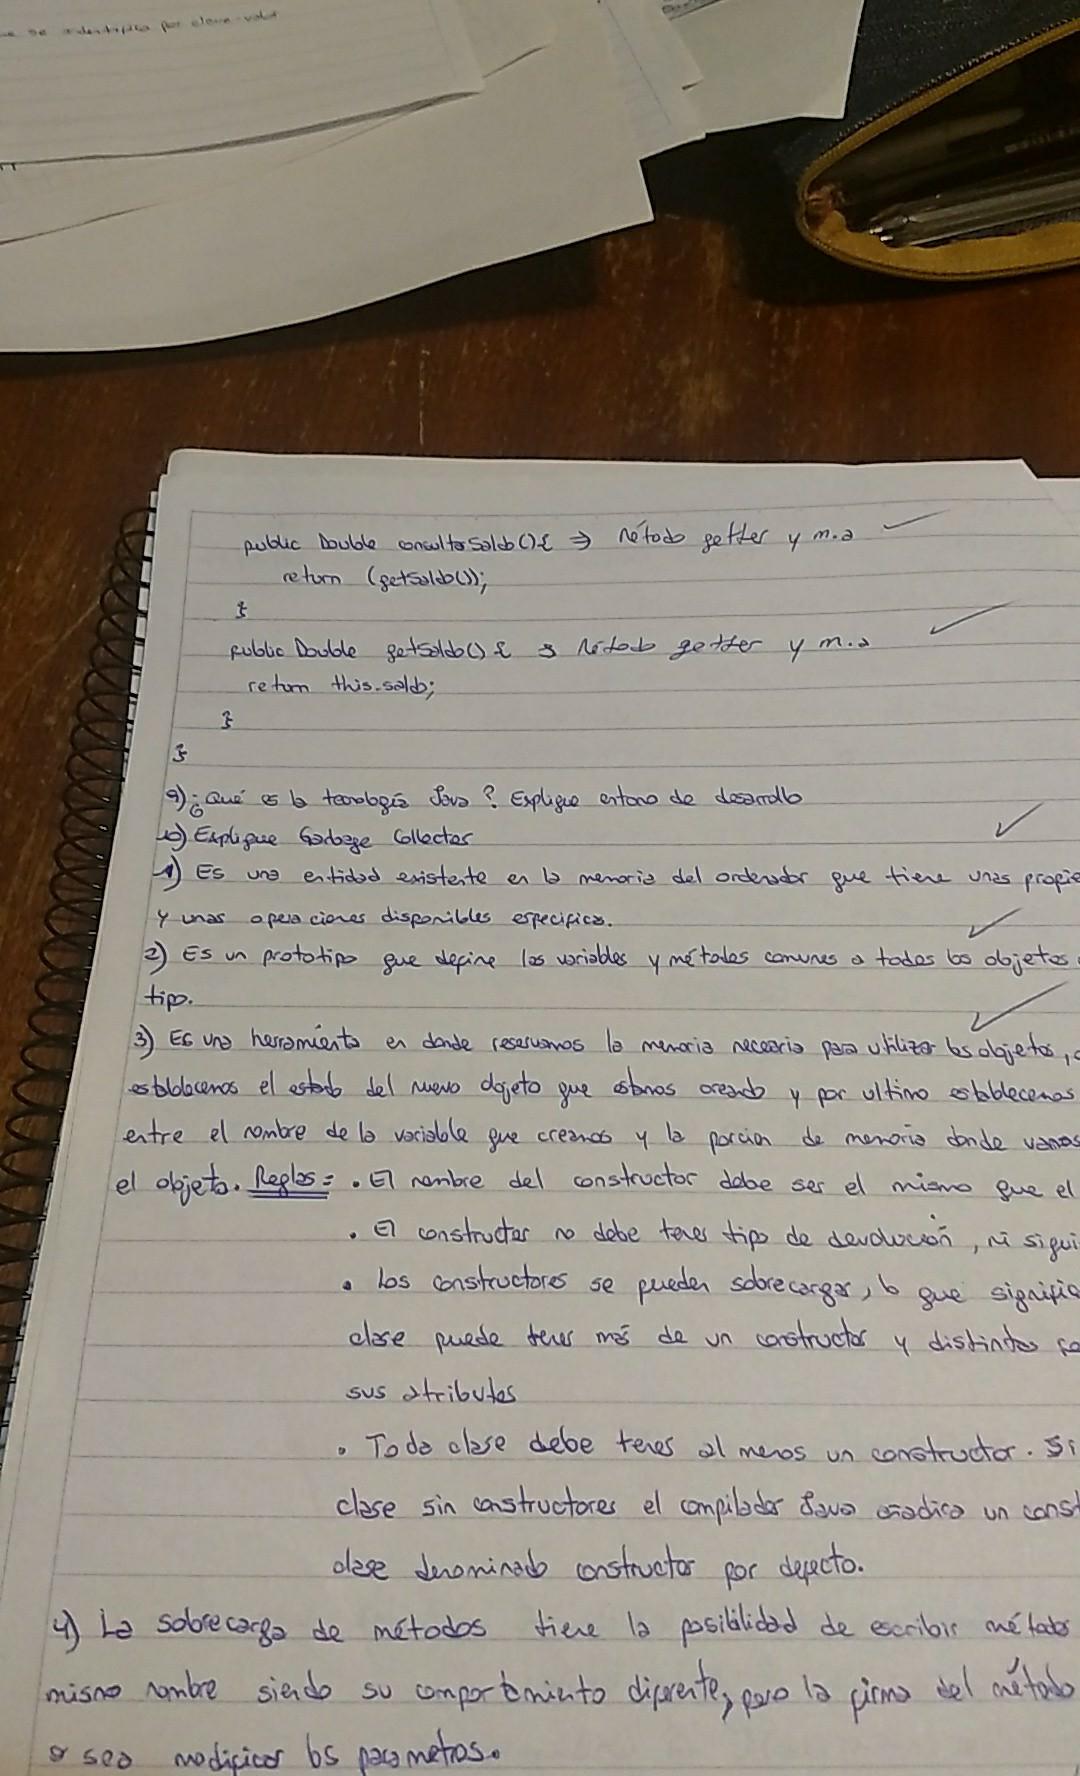 se identifica por clave-valor
public Double consultarSaldo(){ => Método getter y m.a
return (getSaldo());
}
public Double getSaldo() { => Método getter y m.a
return this.saldo;
}
}
9) ¿Qué es la tecnología Java? Explique entorno de desarrollo
10) Explique Garbage Collector
1) Es una entidad existente en la memoria del ordenador que tiene unas propie
y unas operaciones disponibles específica.
2) Es un prototipo que define las variables y métodos comunes a todos los objetos
tipo.
3) Es una herramienta en donde reservamos la memoria necesaria para utilizar los objetos,
establecemos el estado del nuevo objeto que estamos creando y por ultimo establecemos
entre el nombre de la variable que creamos y la porcion de memoria donde vamos
el objeto. Reglas: • El nombre del constructor debe ser el mismo que el
• El constructor no debe tener tipo de devolución, ni sigui
• Los constructores se pueden sobrecargar, lo que significa
clase puede tener más de un constructor y distintos
sus atributos
• Toda clase debe tener al menos un constructor. Si
clase sin constructores el compilador Java añadira un const
clase denominado constructor por defecto.
4) La sobrecarga de métodos tiene la posibilidad de escribir métodos
mismo nombre siendo su comportamiento diferente, pero la firma del método
o sea modificar los parametros.